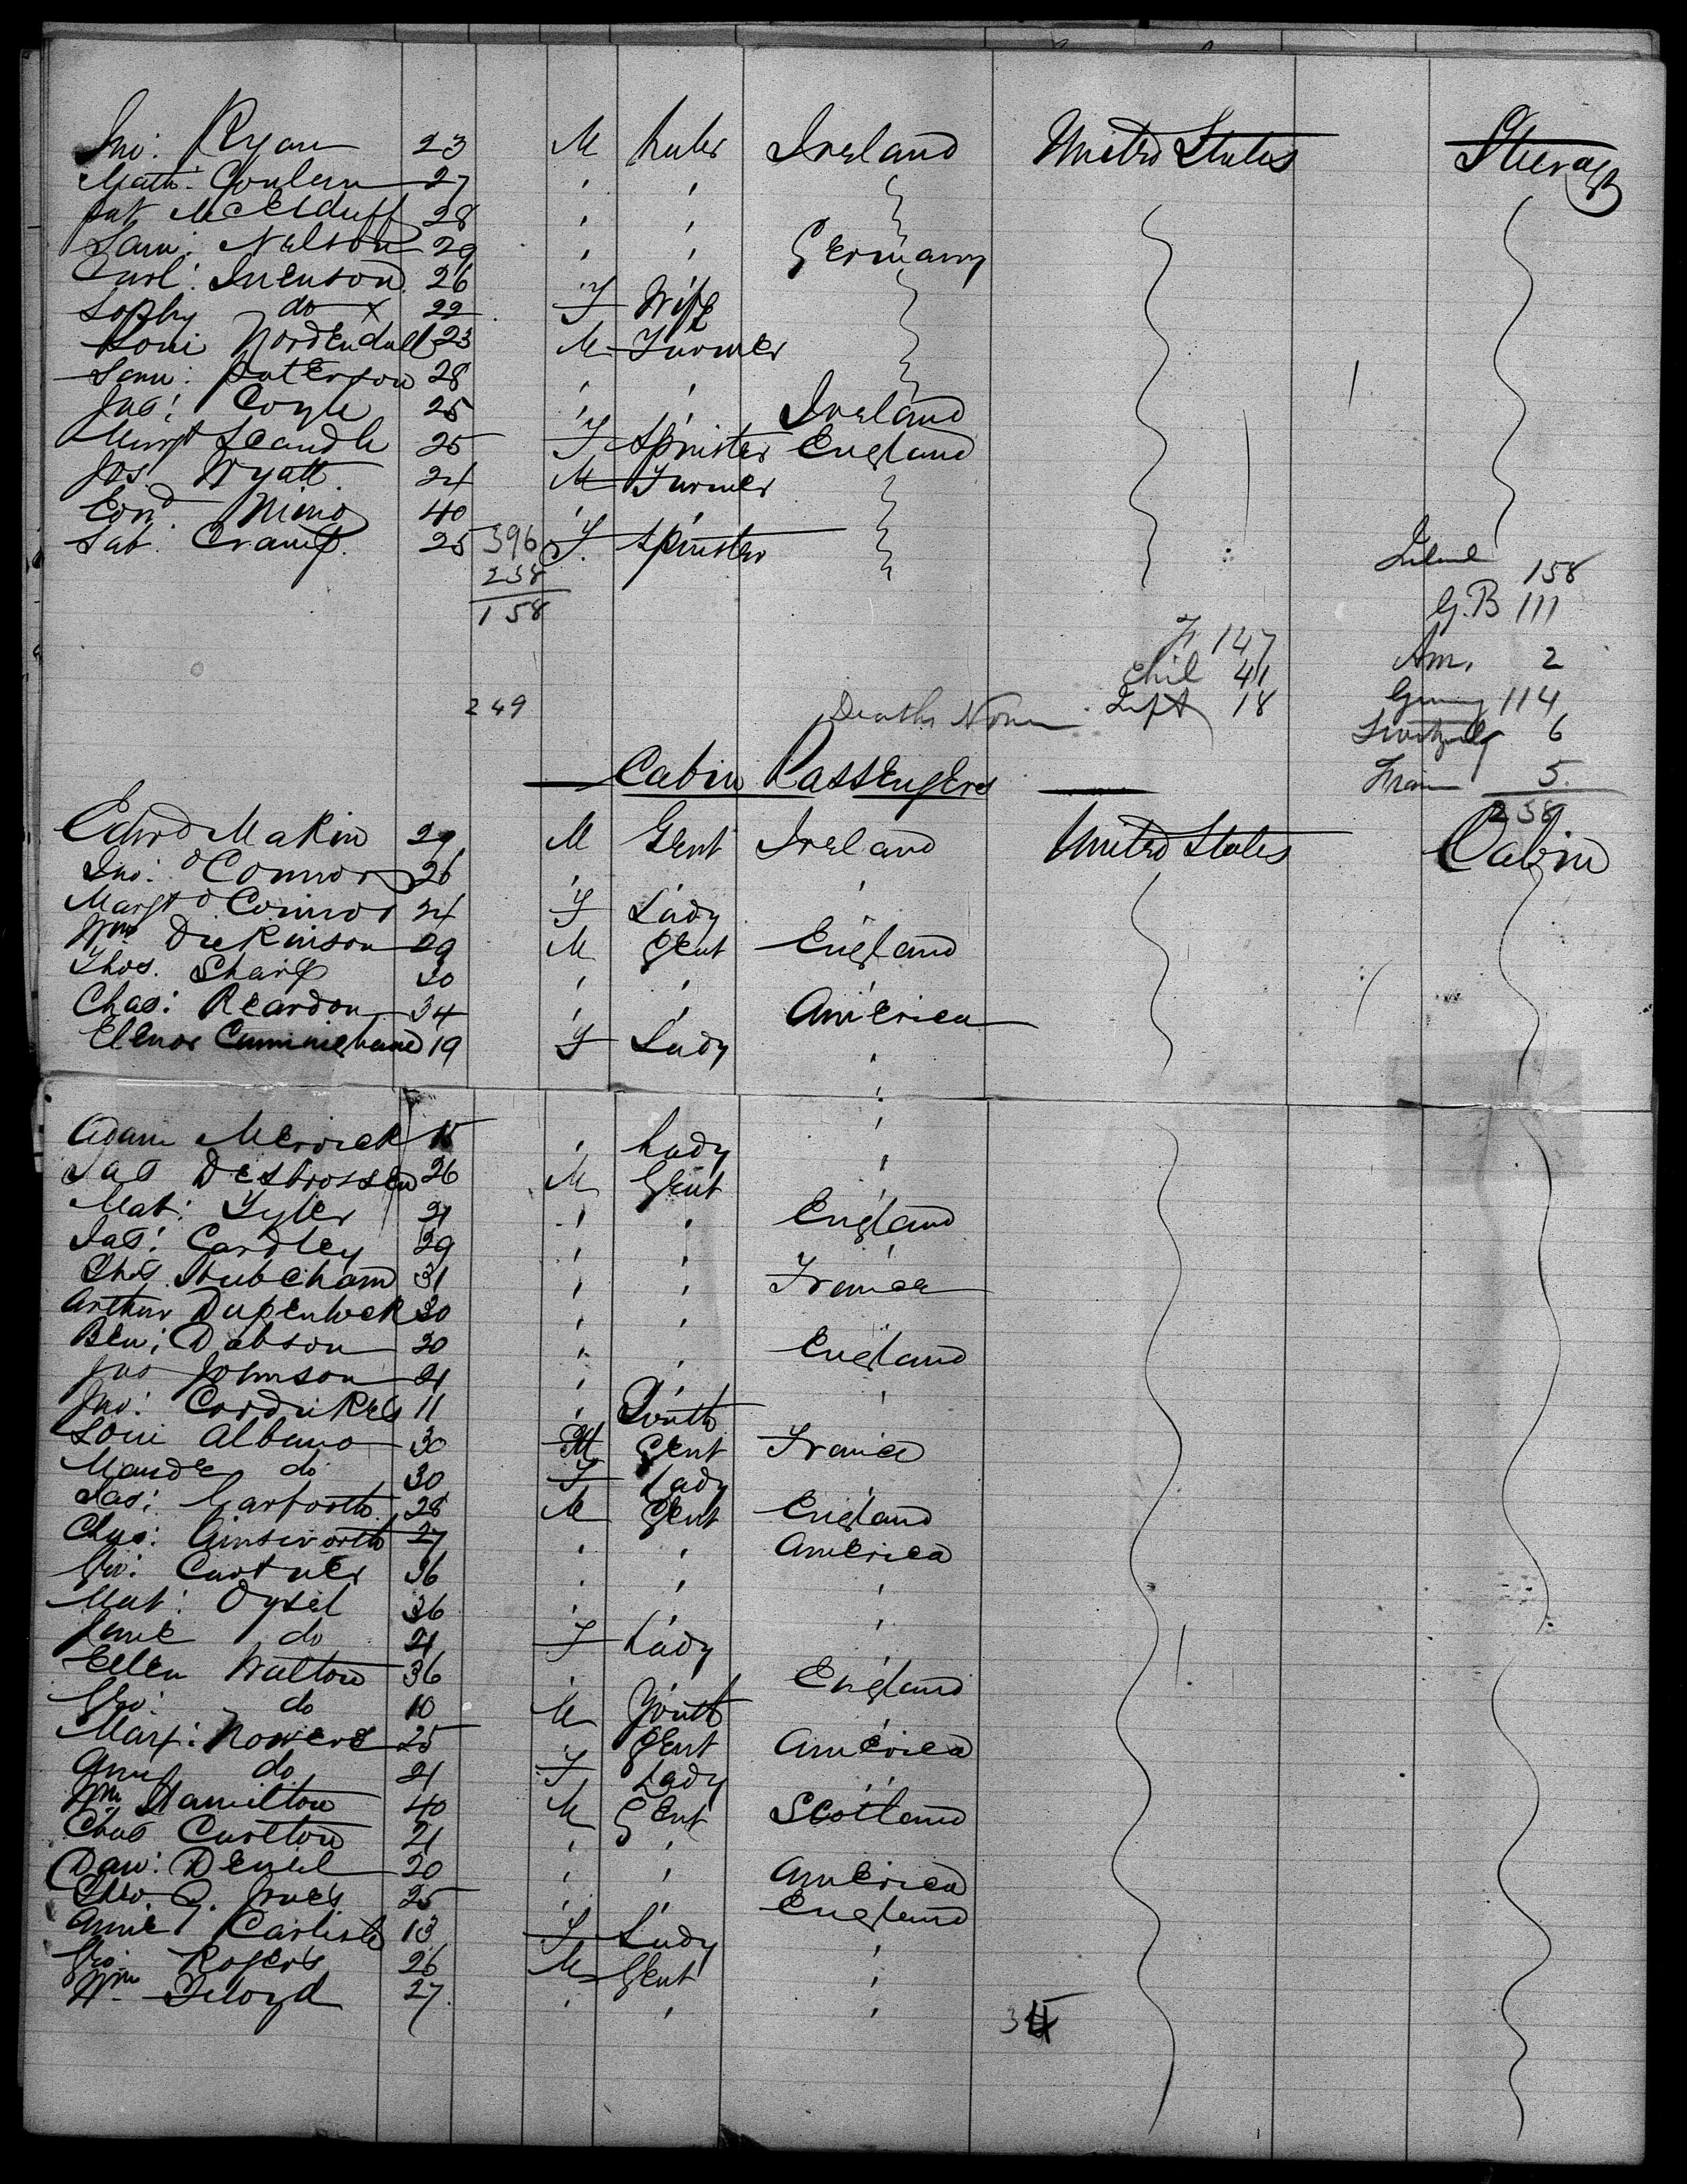 Jno: Ryan 23 M Labr Ireland United States Steerage
Math: Conlern 27 " "
Pat McElduff 28 " "
Sam: Nelson 29 " " Germany
Carl: Svenson 26
Sophy do x 22 F Wife
Loui Nordendall 23 M Farmer
Sam: Paterson 28 " "
Jas: Coyle 25 " " Ireland
Margt Scandle 25 F Spinster England
Jos. Wyatt 24 M Farmer
Edwd Nimo 40 " "
Sab: Cramp. 25 396 F. Spinster
238 158
158 G.B 111
F 147
Chil 41 Am. 2
249 Deaths None Inft 18 Germy 114
6
5.
Cabin Passengers 238
Edwd Makin 29 M Gent Ireland United States Cabin
Jno: O'Connor 26 " " "
Margt O'Connor 24 F Lady "
Wm Dickinson 29 M Gent England
Thos. Sharp 30 " " "
Chas: Reardon 34 " " America
Elenor Cunningham 19 F Lady "
Adam Merrick 18 " Lady "
Jas Desbrossen 26 M Gent "
Mat: Tyler 21 " " England
Jas: Cardley 29 " " "
Chas Stubcham 31 " " France
Arthur Dupenlock 30 " "
Ben: Dabson 30 " " England
Jno Johnson 21 " " "
Jno: Cordukes 11 " Youth
Loui Albano 30 M Gent France
Maude do 30 F Lady "
Jas: Garforth 28 M Gent England
Chas: Ainsworth 27 " " America
Geo: Curtner 36 " " "
Mat: Oysel 36 " " "
Jane do 21 F Lady "
Ellen Walton 36 " " England
Geo: do 10 M Youth "
Max: Nowers 25 " Gent America
Amy do 21 F Lady "
Wm Hamilton 40 M Gent Scotland
Chas Carlton 21 " "
Dan: Deniel 20 " " America
Theo G. Jones 25 " " England
Annie Carlisle 13 F Lady "
Geo: Rogers 26 M Gent "
Wm Floyd 27 " " "